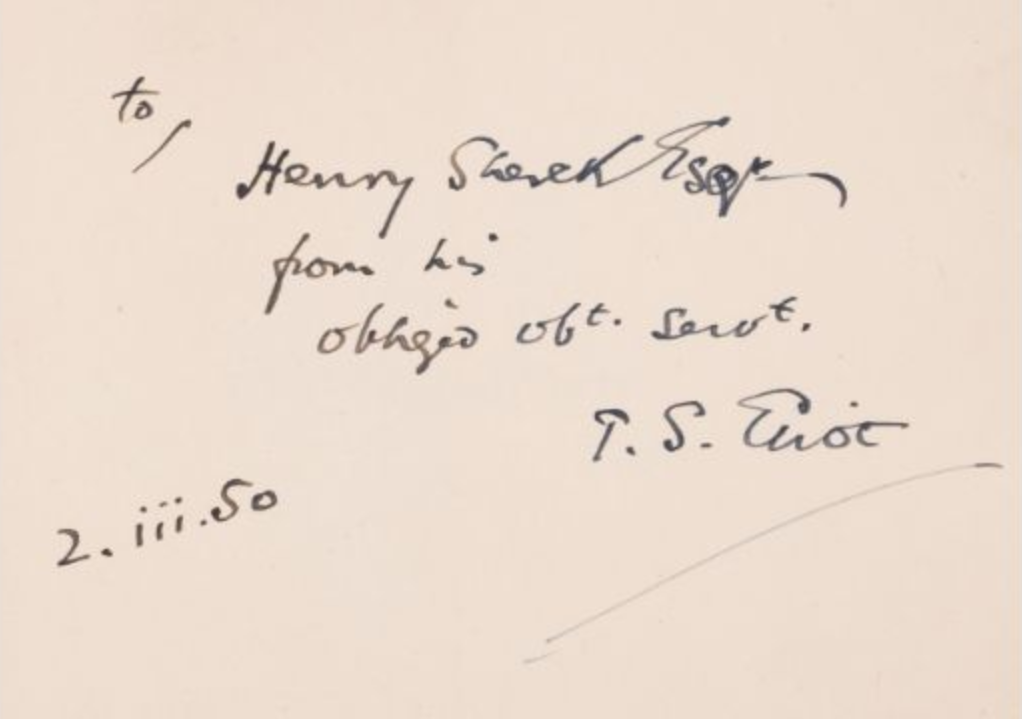 to
Henry Sherek Esqr.
from his
obliged obt. servt.
T. S. Eliot
2.iii.50